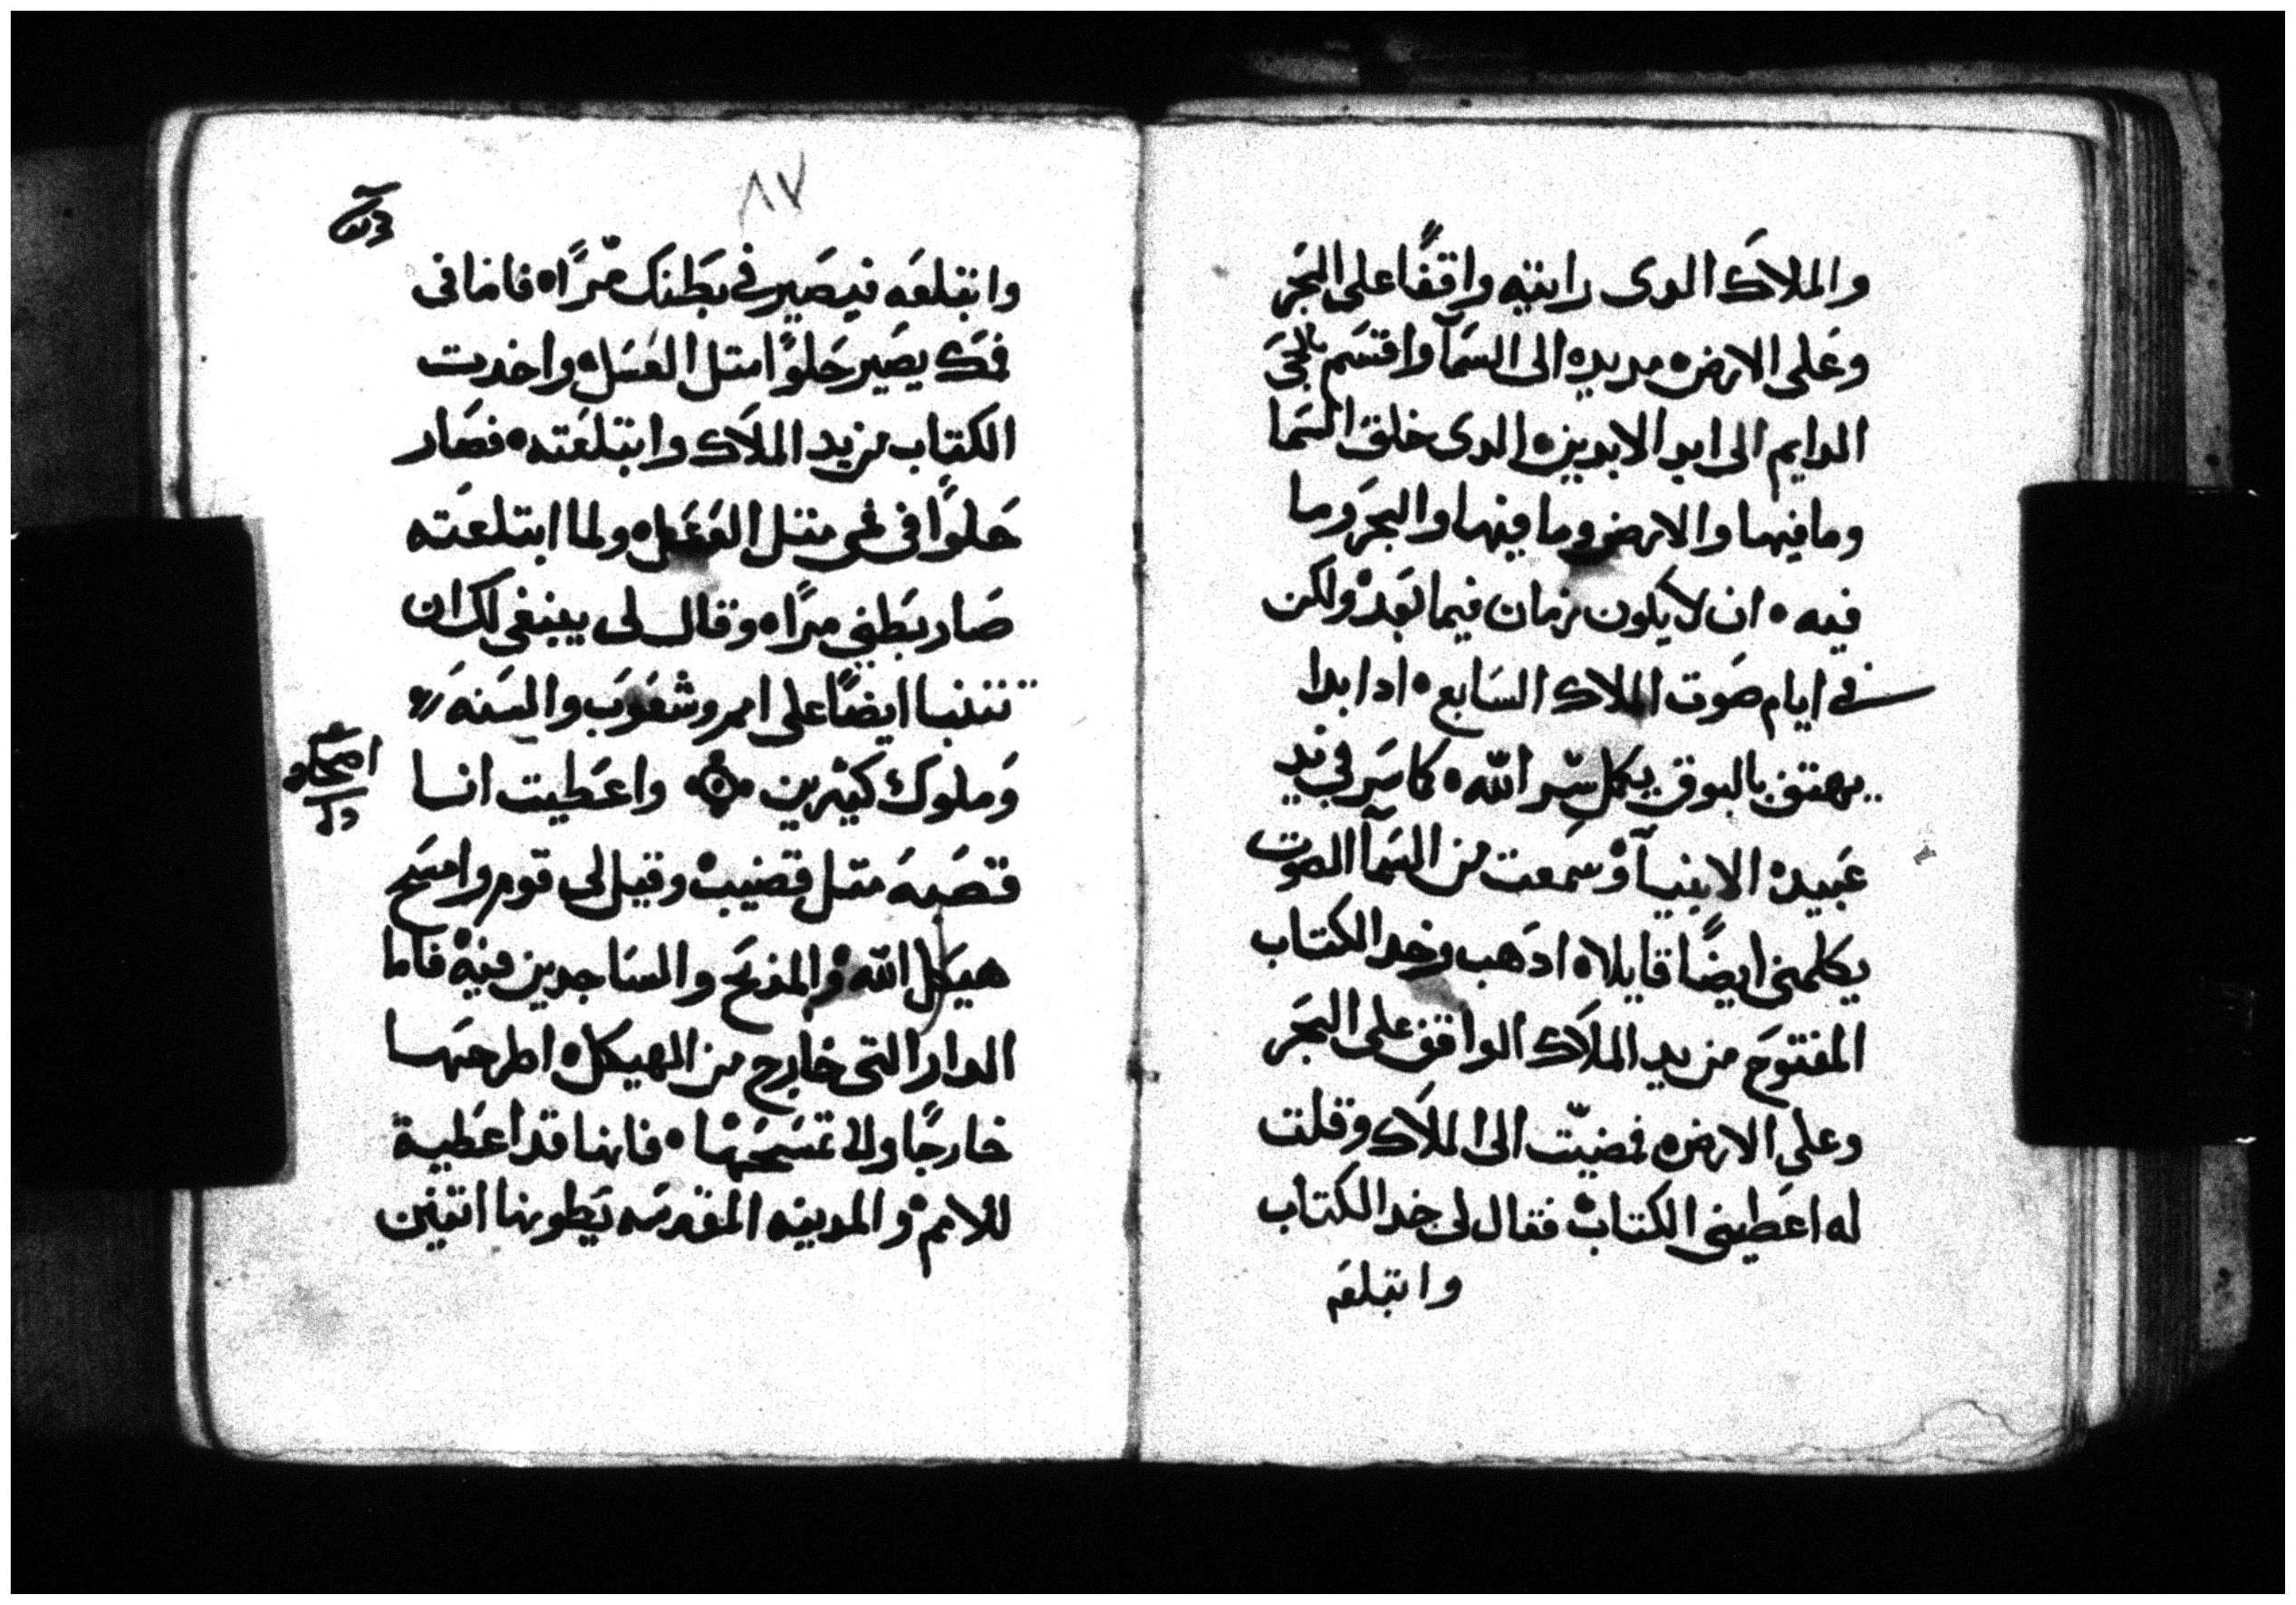 والملاك الدى رايته واقفًا على البحر
وعلى الارض مد يده الى السمآ واقسم بالحى
الدايم الى ابد الابدين الدى خلق السما
وما فيها والارض وما فيها والبحر وما
فيه ان لا يكون زمان فيما بعد ولكن
في ايام صوت الملاك السابع ادا بدا
يهتف بالبوق يكمل سِر الله كما بشر فى يد
عبيده الانبيآ وسمعت من السمآ الصوت
يكلمنى ايضًا قايلا ادهب وخد الكتاب
المفتوح من يد الملاك الواقف على البحر
وعلى الارض فمضيت الى الملاك وقلت
له اعطينى الكتاب فقال لى خد الكتاب
وابتلعه
٨٧
وابتلعه فيصير فى بطنك مرًا فاما فى
فمك يصير حلوًا متل العسل واخدت
الكتاب من يد الملاك وابتلعته فصار
حلوًا فى فمى متل العسل ولما ابتلعته
صار بطنى مرًا وقال لى ينبغى لك ان
تتنبا ايضًا على امم وشعوب والسنه
وملوك كتيرين واعطيت انا
اصحاح
قصبه متل قضيب وقيل لى قوم وامسح
هيكل الله والمذبح والساجدين فيه فاما
الدار التى خارج من الهيكل اطرحها
خارجًا ولا تمسحها فانها قد اعطية
للامم والمدينه المقدسه يطونها اتنين